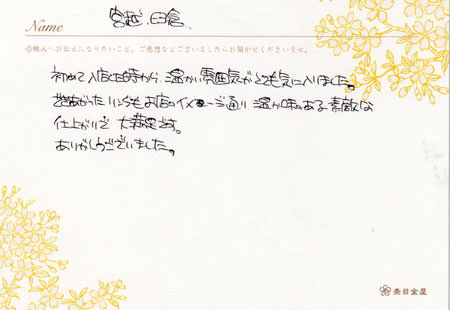 Name 宮越、田倉
◎職人へお伝えになりたいこと、ご感想などございましたらお聞かせくださいませ。
初めて入店した時から、温かい雰囲気がとても気に入りました。
出来あがったリングもお店のイメージ通り温か味のある素敵な
仕上がりで大満足です。
ありがとうございました。
杢目金屋